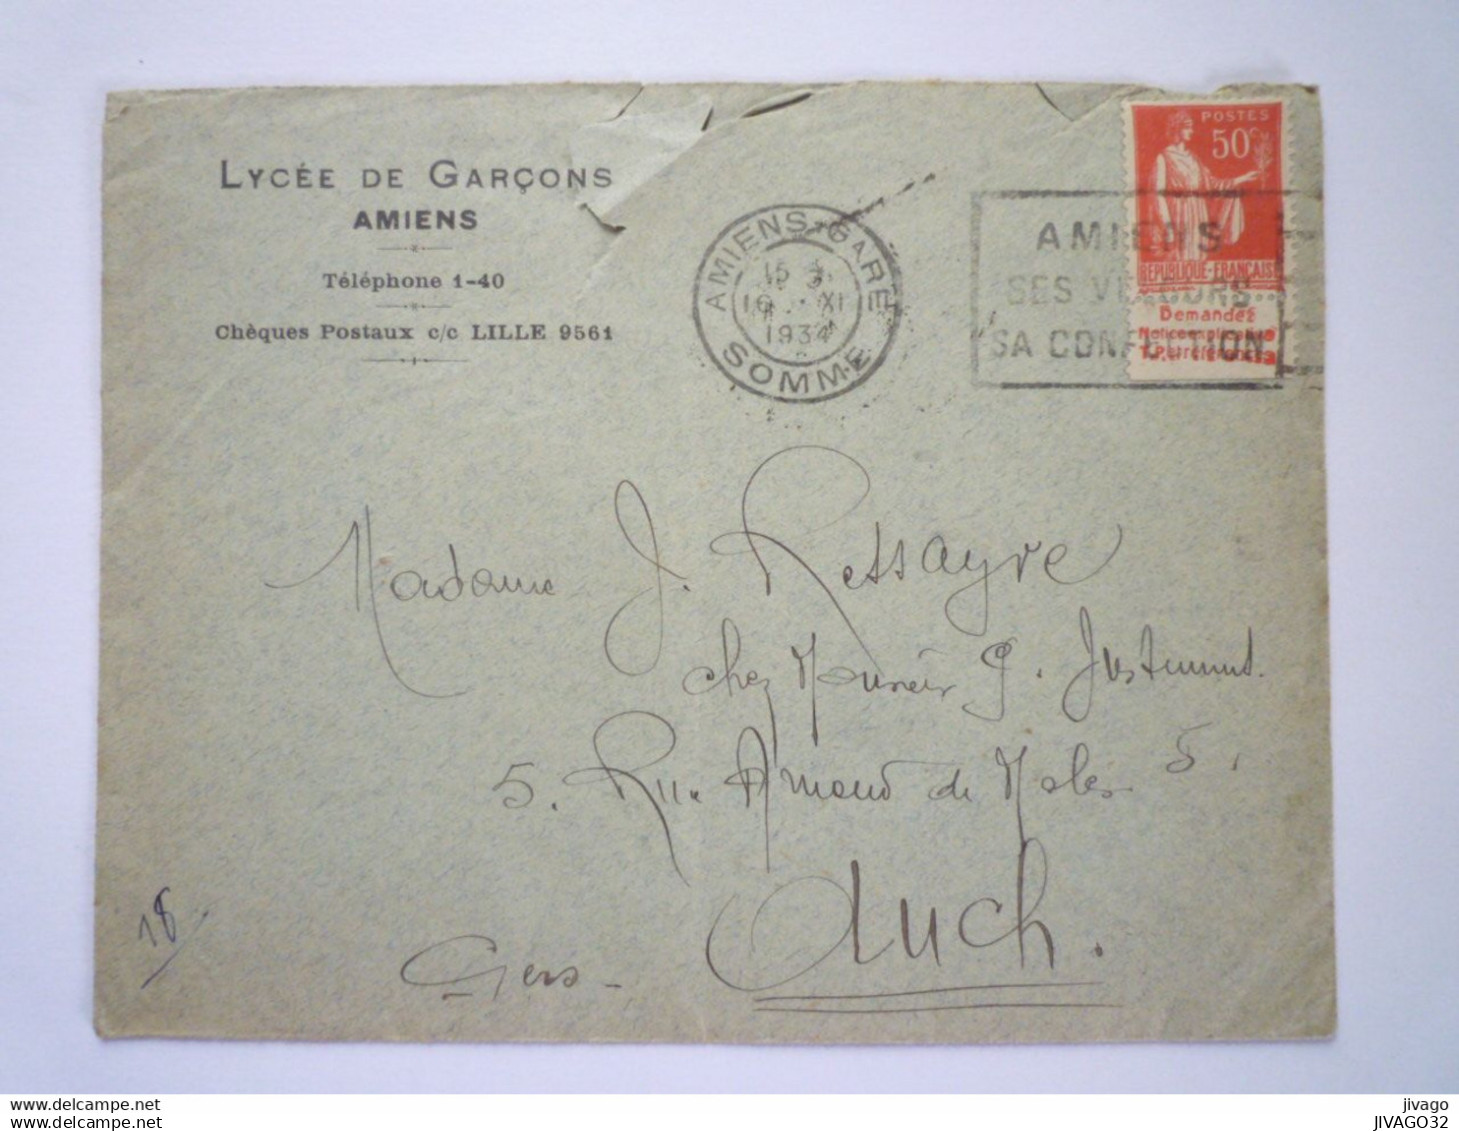 LYCÉE DE GARÇONS
AMIENS
Téléphone 1-40
Chèques Postaux c/c LILLE 9561
AMIENS-GARE
15
16 - XI
1934
SOMME
AMIENS
SES VELOURS
SA CONFECTION
POSTES
50c
REPUBLIQUE-FRANÇAISE
Demandez
Notice explicative
Madame J. Ressayre
chez Monsieur G.
5. Rue Arnaud de Moles 5.
Auch.
Gers
18
delcampe.net
jivago
JIVAGO32